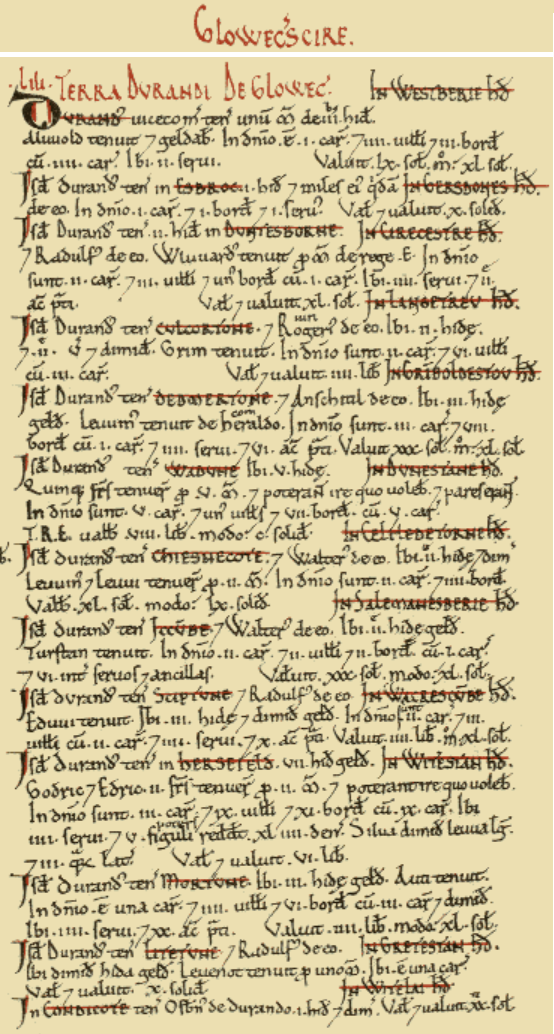 GLOWECSCIRE.
.LIII. TERRA DURANDI DE GLOWEC. IN WESTBERIE HD
DURAND uicecom ten unu m de.III. hid.
Aluuold tenuit 7 geldab. In dnio. e. I. car. 7 IIII. uilli 7 III. bord
cu. IIII. car. Ibi. II. serui. Valuit. lx. sol. m. xl. sol.
Isd durand ten in ESBROC. I. hid 7 miles ei qda IN GERSDONES HD.
de eo. In dnio. I. car. 7 I. bord 7 I. seru. Val 7 ualuit. x. solid.
Isd Durand ten. II. hid in DUNTESBORNE. IN CIRECESTRE HD.
7 Radulf de eo. Wluuard tenuit p m de rege. E. In dnio
sunt. II. car. 7 III. uilli 7 un bord cu. I. car. Ibi. IIII. serui. 7 II.
ac pti. Val 7 ualuit. xl. sol. IN LANGETREU HD.
Isd Durand ten CULCORTONE. 7 Roger de eo. Ibi. II. hide.
7. II. v 7 dimid. Grim tenuit. In dnio sunt. II. car. 7 VI. uilli
cu. III. car. Val 7 ualuit. IIII. lib IN GRIBOLDESTOU HD.
Isd Durand ten DEDMERTONE. 7 Anschitil de eo. Ibi. III. hide
geld. Leuuin tenuit de heraldo com. In dnio sunt. III. car. 7 VIII.
bord cu. I. car. 7 IIII. serui. 7 VI. ac pti. Valuit xxx. sol. m. xl. sol.
Isd Durand ten WADUNE Ibi. V. hide. IN DUNESTANE HD.
Qumq frs tenuer p. V. m. 7 poteran ire quo uoleb. 7 pares erant.
In dnio sunt. V. car. 7 un uills 7 VII. bord. cu. V. car.
T.R.E. ualb. VIII. lib. modo. c. solid. IN CELFLEDETORNE HD.
Isd durand ten CHIESNECOTE. 7 Walter de eo. Ibi. II. hide 7 dim
Leuuin 7 Leuui tenuer p. II. m. In dnio sunt. II. car. 7 IIII. bord.
Valb. XL. sol. modo. lx. solid. IN SALEMANESBERIE HD.
Isd durand ten ICCUBE. 7 Walter de eo. Ibi. II. hide geld.
Turstan tenuit. In dnio. II. car. 7 II. uilli 7 II. bord. cu. I. car.
7 VI. int seruos 7 ancillas. Valuit. xxx. sol. modo. xl. sol.
Isd durand ten SCIPTUNE 7 Radulf de eo. IN WACRESCUBE HD.
Eduui tenuit. Ibi. III. hide 7 dimid geld. In dnio sunt. II. car. 7 III.
uilli cu. II. car. 7 IIII. serui. 7 X. ac pti. Valuit. IIII. lib. m. xl. sol.
Isd durand ten in HERSEFELD. VII. hid geld. IN WITESTAN HD.
Godric 7 Edric. II. frs tenuer p. II. m. 7 poterant ire quo uoleb.
In dnio sunt. III. car. 7 IX. uilli 7 XI. bord cu. IX. car. Ibi
IIII. serui. 7 V. figuli redd. xl IIII. den. Silua dimid leuua lg.
7 III. qz lat. Val 7 ualuit. VI. lib.
Isd Durand ten MORTUNE. Ibi. III. hide geld. Auti tenuit.
In dnio. e una car. 7 IIII. uilli 7 VI. bord cu. III. car 7 dimid.
Ibi. IIII. serui. 7 XX. ac pti. Valuit. IIII. lib. modo. xl. sol.
Isd Durand ten LITETUNE 7 Radulf de eo. IN GRETESTAN HD.
Ibi dimid hida geld. Leuenot tenuit p uno m. Ibi. e una car.
Val 7 ualuit. X. solid. IN WITELAI HD.
In CONDICOTE ten Osbn de durando. I. hid 7 dim. Val 7 ualuit. xx. sol.